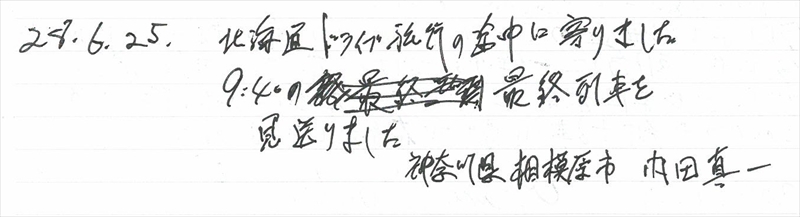 28.6.25. 北海道ドライブ旅行の途中に寄りました
9:40の最終列車を
見送りました
神奈川県相模原市 内田真一